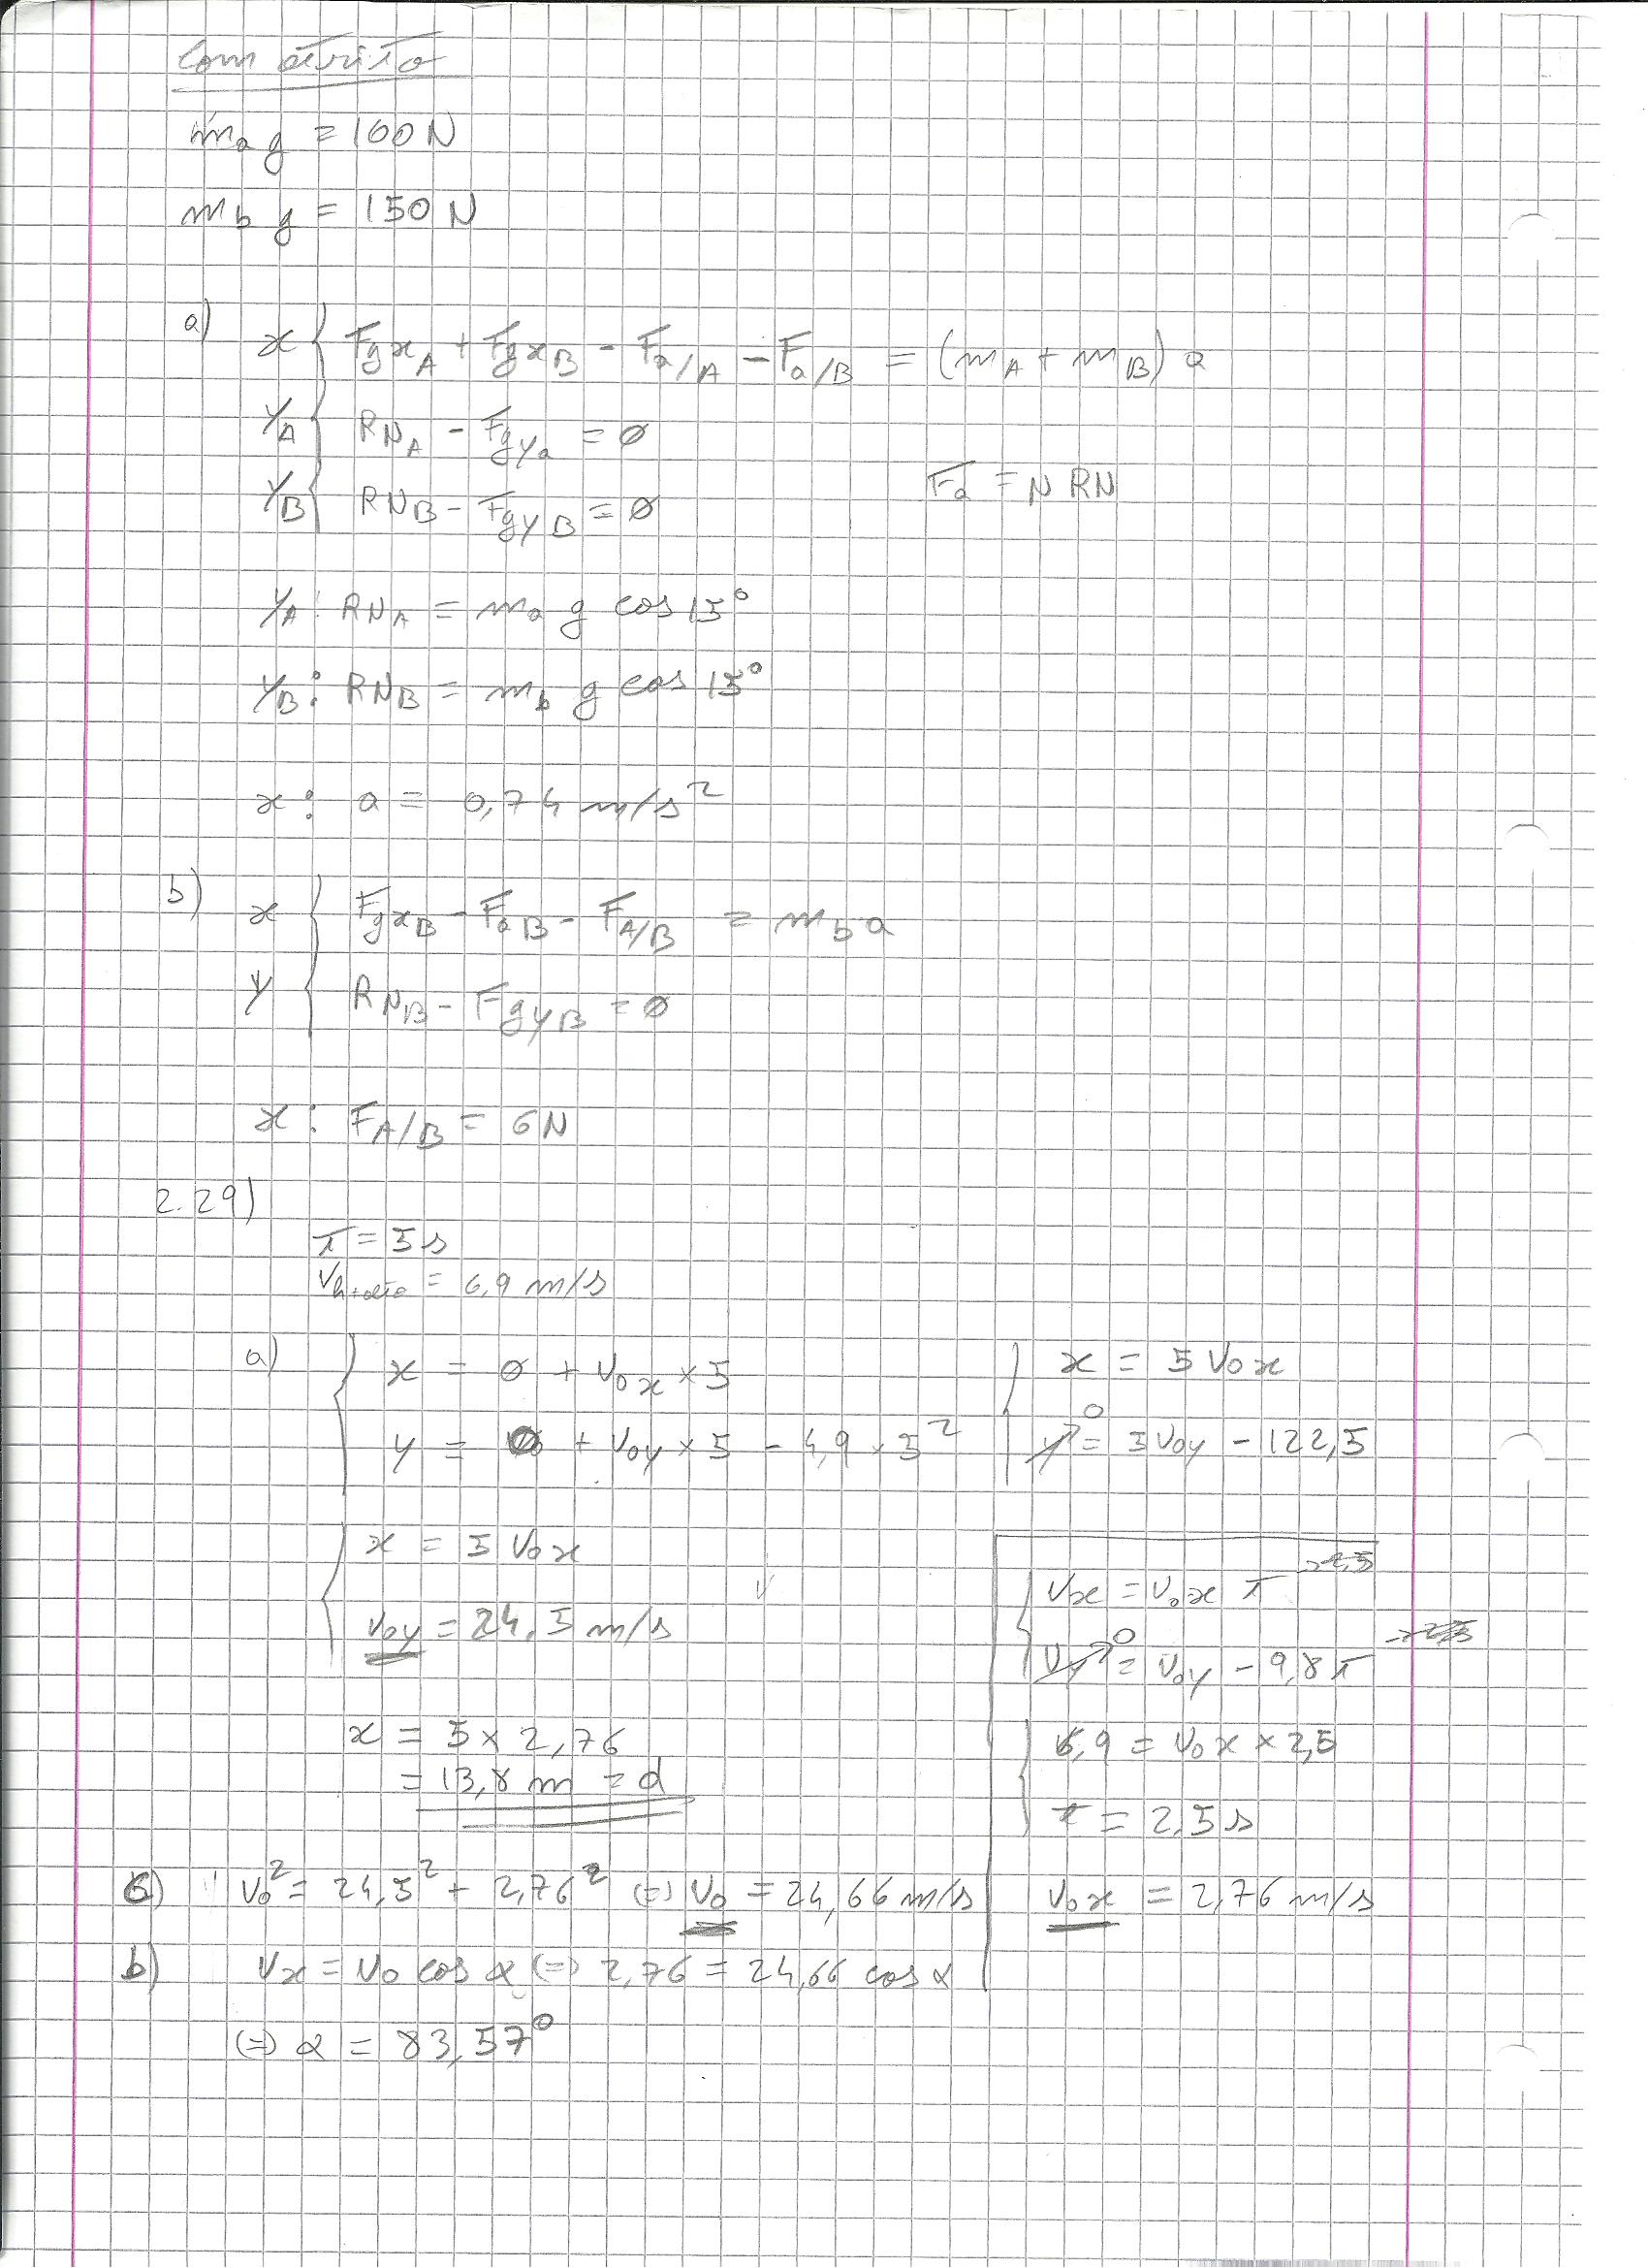 Com atrito
ma g = 100 N
mb g = 150 N
a) x { FgxA + FgxB - Fa/A - Fa/B = (mA + mB) a
yA { RNA - Fgya = 0
yB { RNB - FgyB = 0
Fa = N RN
yA: RNA = ma g cos 15°
yB: RNB = mb g cos 15°
x: a = 0,74 m/s²
b) x { FgxB - FaB - FA/B = mb a
y { RNB - FgyB = 0
x: FA/B = 6N
2.29)
t = 5 s
= 6,9 m/s
a) { x = 0 + v0x × 5
y = 0 + v0y × 5 - 4,9 × 5²
{ x = 5 v0x
y⁰ = 5 v0y - 122,5
{ x = 5 v0x
v0y = 24,5 m/s
x = 5 × 2,76
= 13,8 m = d
{ vx = v0x t
vy⁰ = v0y - 9,8 t
{ 6,9 = v0x × 2,5
t = 2,5 s
v0x = 2,76 m/s
c) v0² = 24,5² + 2,76² (=) v0 = 24,66 m/s
b) vx = v0 cos α (=) 2,76 = 24,66 cos α
(=) α = 83,57°